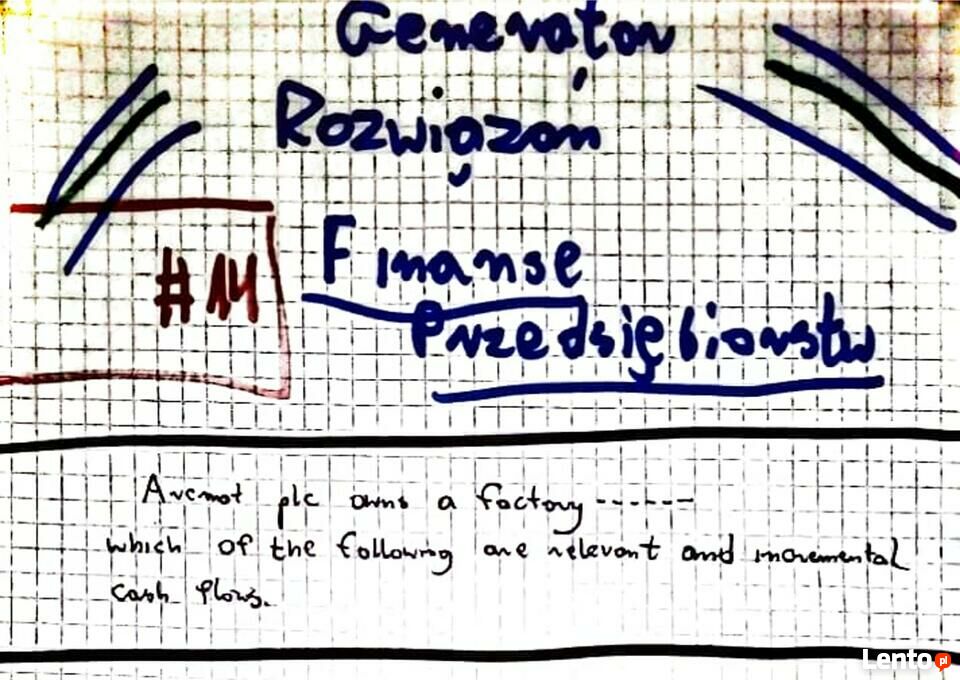 Generator
Rozwiązań
#14
Finanse
Przedsiębiorstw
Arcmot plc owns a factory ------
which of the following are relevant and incremental
cash flows.
Lento.pl